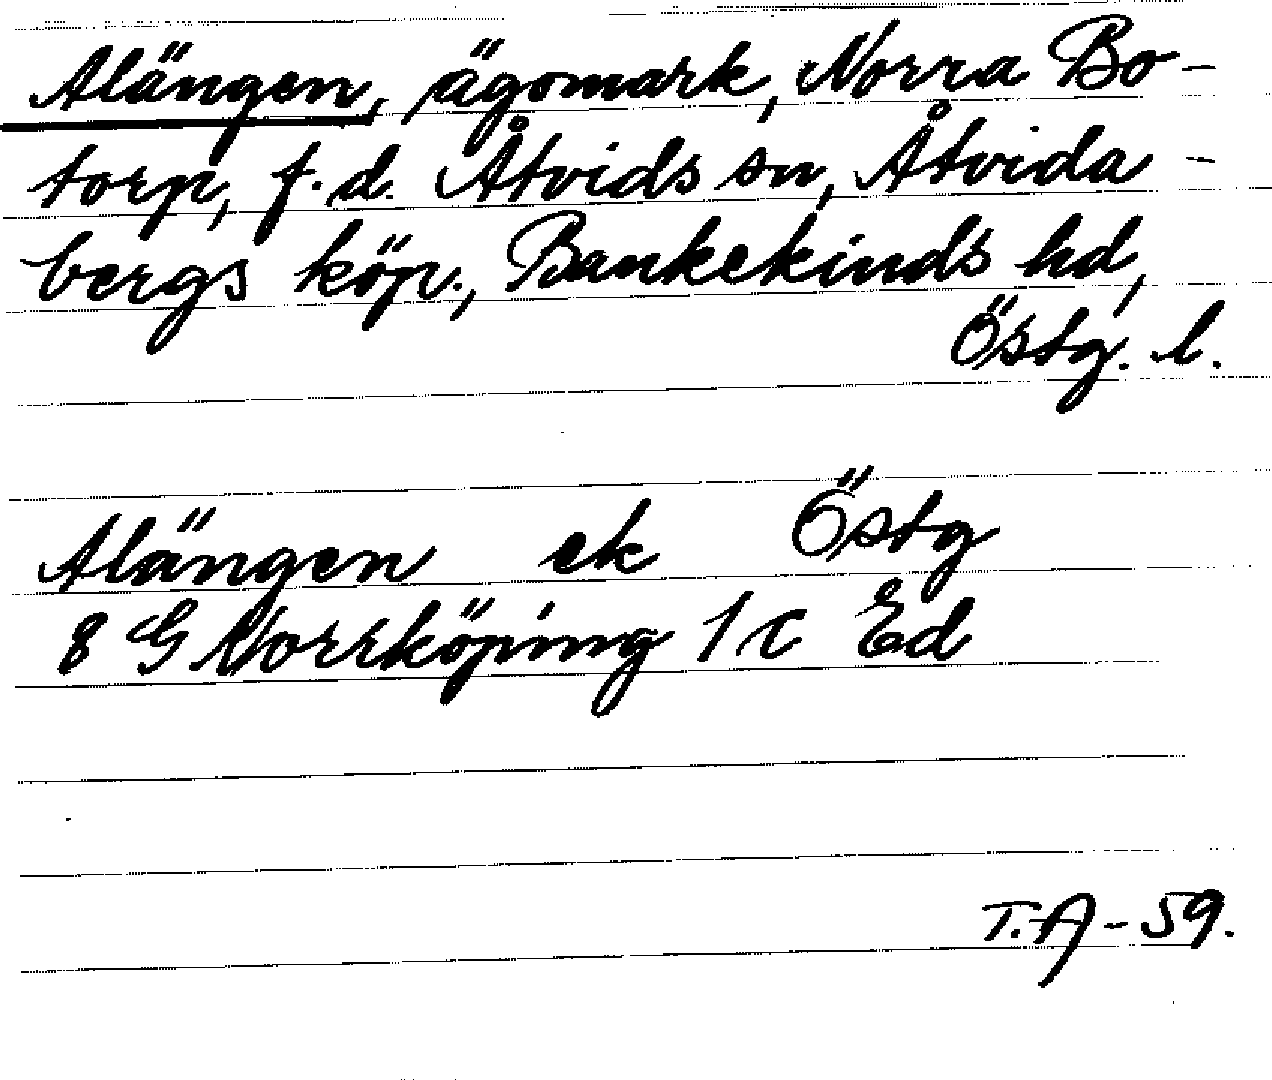 Alängen, ägomark, Norra Bo-
torp, f.d. Åtvids sn, Åtvida-
bergs köp., Bankekinds hd,
Östg. l.
Alängen ek Östg
8 G Norrköping 1 c Ed
T.A-59.